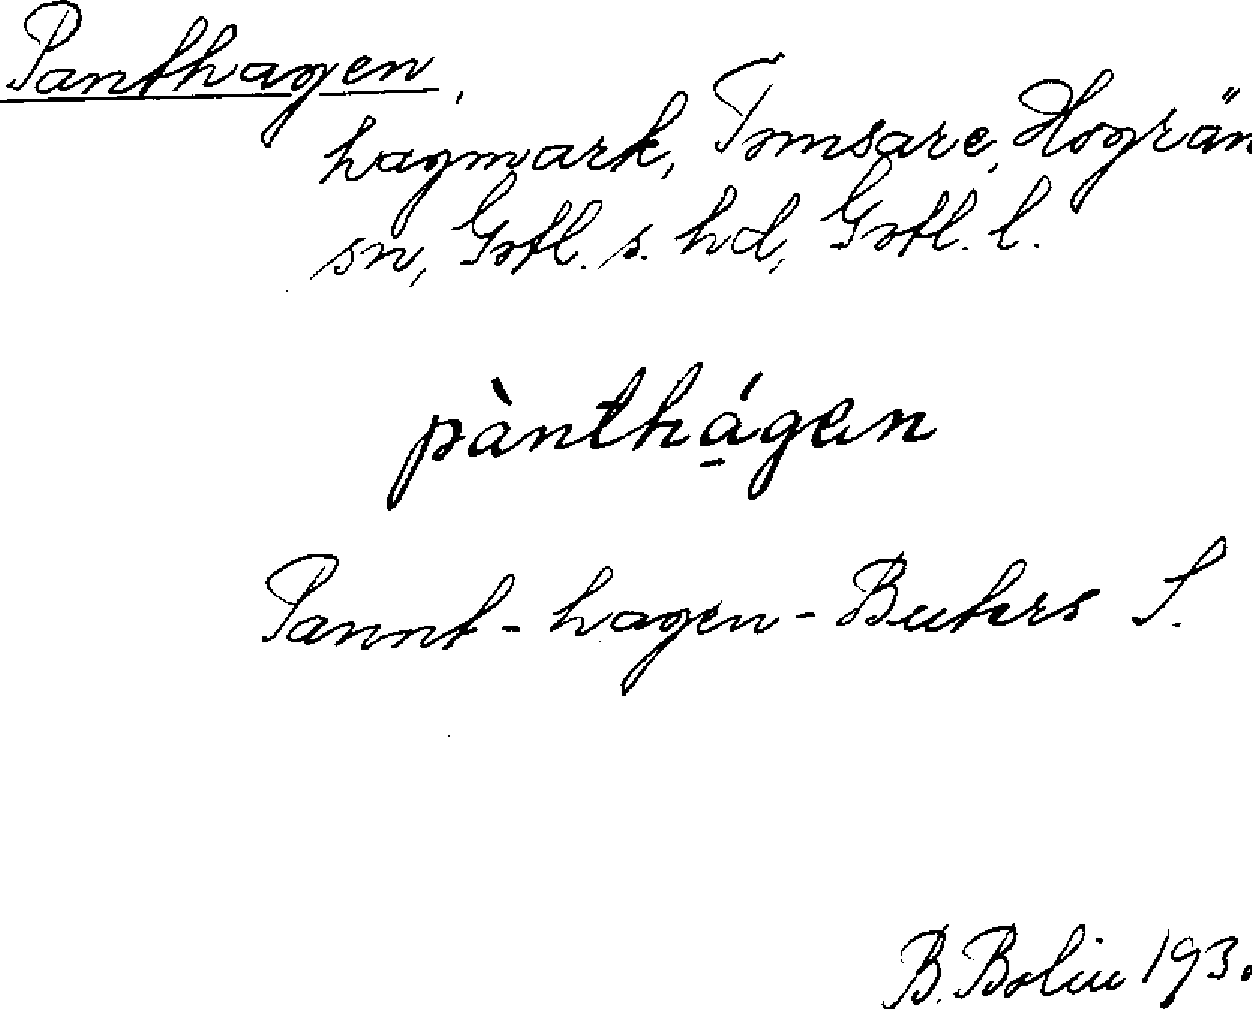 Panthagen,
hagmark, Tomsare, Hogrän
sn, Gotl. s. hd, Gotl. l.
pànthá̱gen
Pannt-hagen-Buters S.
B. Bolin 193.